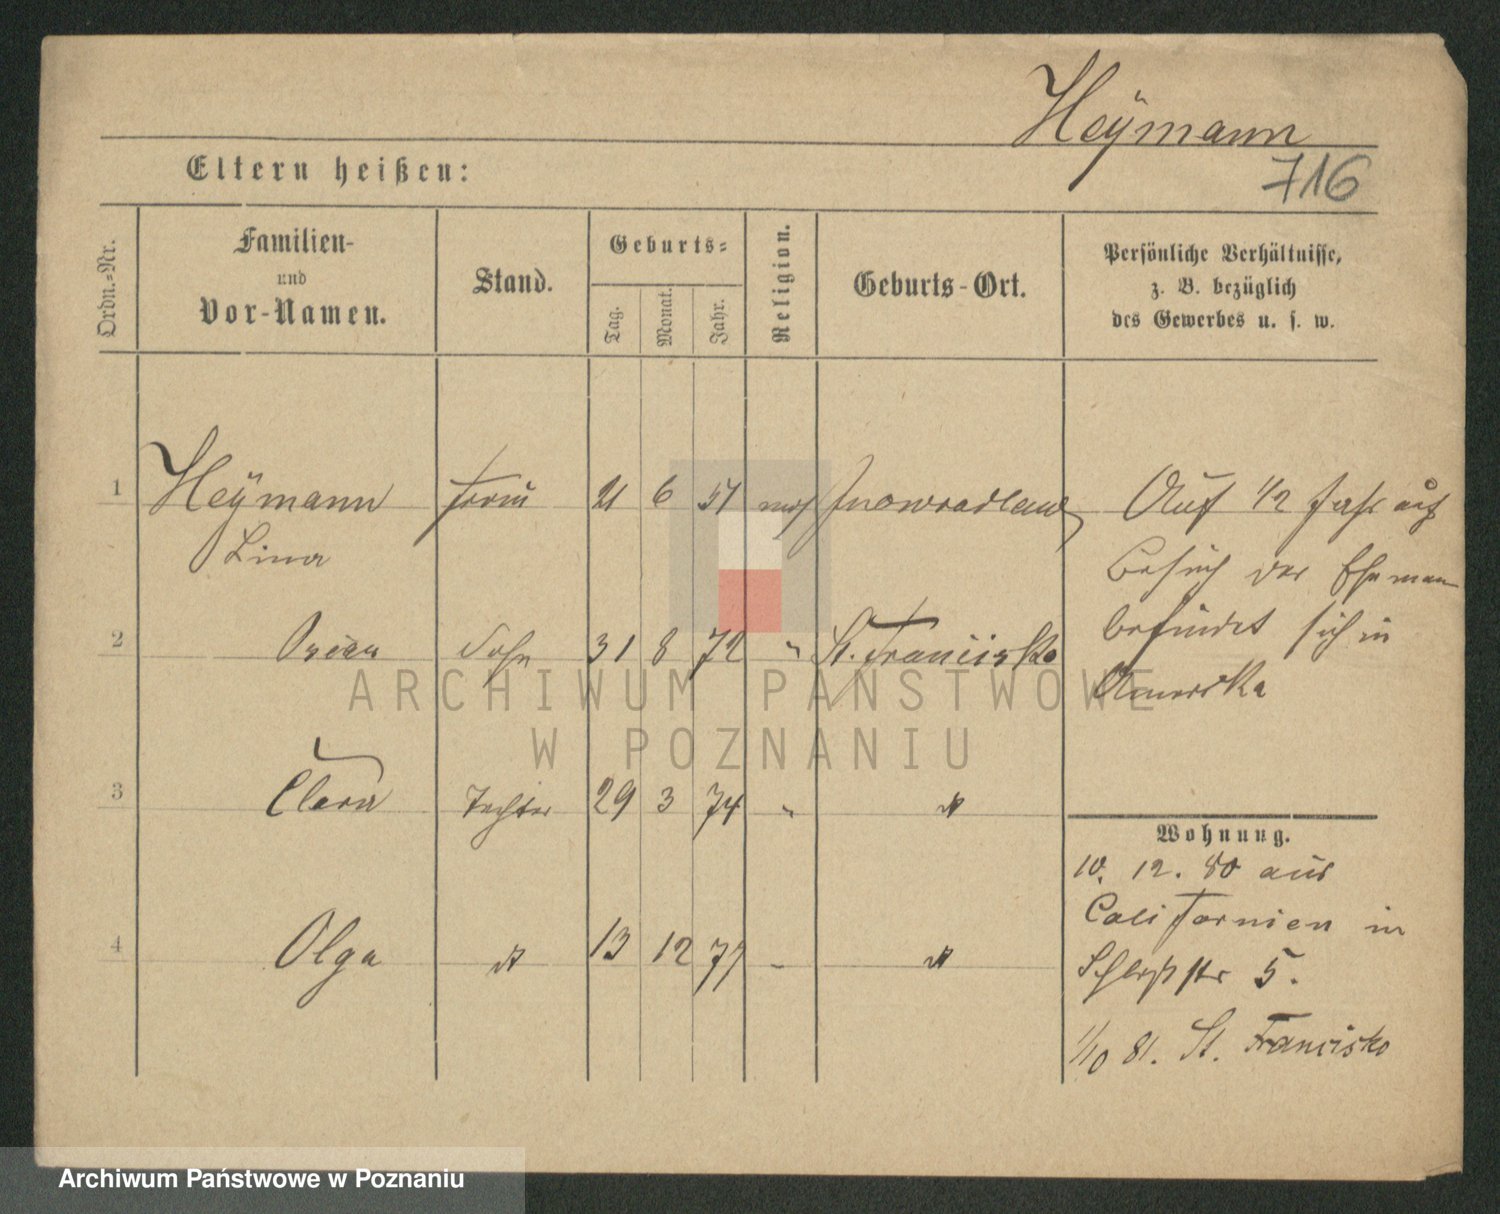 Heÿmann
716
Eltern heißen:
Ordn.-Nr.
Familien-
und
Vor-Namen.
Stand.
Geburts-
Tag.
Monat.
Jahr.
Religion.
Geburts-Ort.
Persönliche Verhältnisse,
z. B. bezüglich
des Gewerbes u. s. w.
1 Heÿmann Frau 21 6 51 mos Inowradlaw
Lina
Auf 1/2 Jahr auf
Besuch der Ehemann
befindet sich in
Amerika
2 Sohn 31 8 72 " St. Francisko
3 Clara Tochter 29 3 74 "
4 Olga 13 12 77
Wohnung.
10. 12. 80 aus
Californien in
Schloßstr 5.
1/10 81. St. Francisko
ARCHIWUM PAŃSTWOWE
W POZNANIU
Archiwum Państwowe w Poznaniu